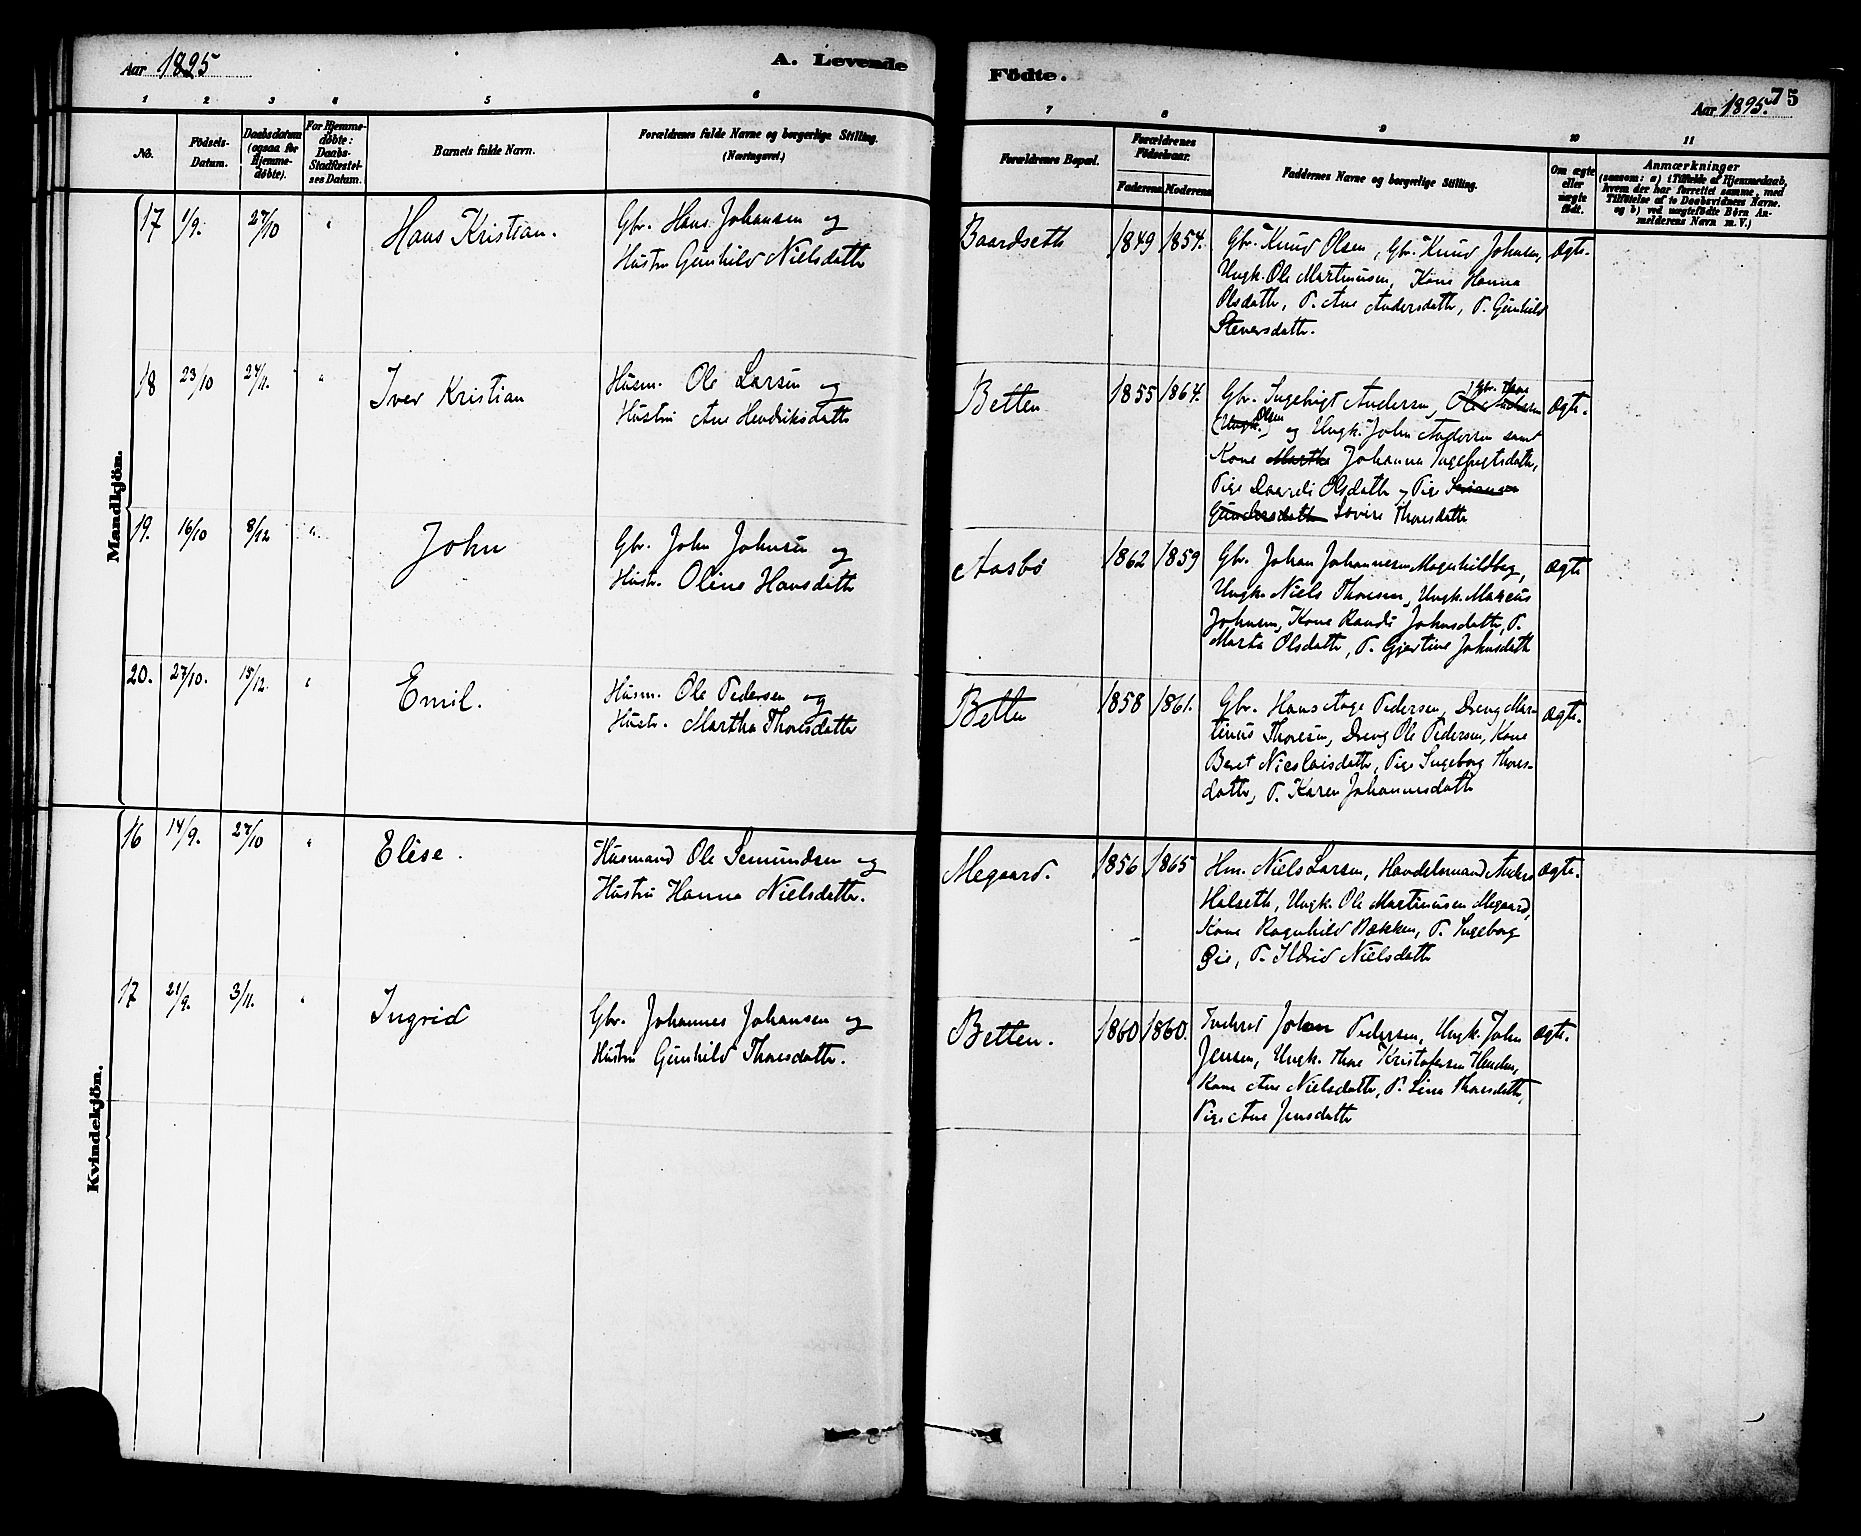 Aar 1895
A. Levende
1
2
3
4
5
6
No.
Födsels-
Datum.
Daabsdatum
(ogsaa for
Hjemme-
döbte).
For Hjemme-
döbte:
Daabs-
Stadfæstel-
ses Datum.
Barnets fulde Navn.
Forældrenes fulde Navne og borgerlige Stilling.
(Næringsvei.)
Mandkjön.
17 1/9. 27/10 " Hans Kristian.
Gbr. Hans Johansen og
Hustru Gunhild Nielsdatter
18 23/10 24/11. " Iver Kristian
Husm. Ole Larsen og
Hustru Ane Hendriksdatter
19. 16/10 8/12 " John
Gbr. John Johnsen og
Hustr. Oline Hansdatter
20. 27/10. 15/12. " Emil.
Husm. Ole Pedersen og
Hustr. Martha Thoresdatter
Kvindekjön.
16 14/9. 27/10 " Elise.
Husmand Ole Semundsen og
Hustru Hanna Nielsdatter.
17 21/9. 3/11. " Ingrid
Gbr. Johannes Johansen og
Hustru Gunhild Thoresdatter.
Födte.
Aar 1895.
75
7
8
9
10
11
Forældrenes Bopæl.
Forældrenes
Födselsaar.
Faderens Moderens
Faddernes Navne og borgerlige Stilling.
Om ægte
eller
uægte
födt.
Anmærkninger
(saasom: a) i Tilfælde af Hjemmedaab,
hvem der har forrettet samme, med
Tilföielse af to Daabsvidners Navne.
og b) ved uægtefödte Börn An-
melderens Navn m. V.)
Baardseth 1849 1854.
Gbr. Knud Olsen, Gbr. Knud Johnsen,
Ungk. Ole Martinusen, Kone Hanna
Olsdatter, P. Ane Andersdatter, P. Gunhild
Steversdatter.
Ægte.
Betten 1855 1864.
Gbr. Ingebrigt Andersen, Gbr. Thore
(Ungk.) Olsen og Ungk. John Andersen samt
Kone Martha Johanna Ingebrigtsdatter,
Pige Olsdatter, Pige
Gundersdatter Lovise Thoresdatter
Ægte.
Aasbø 1862 1859
Gbr. Johan Johannesen Magnhildberg,
Ungk. Niels Thoresen, Ungk. Marcus
Johnsen, Kone Randi Johnsdatter, P.
Marta Olsdatter, P. Gjertine Johnsdatter
Ægte
Betten 1858 1861.
Gbr. Hans Aage Pedersen, Dreng Mar-
tinus Thoresen, Dreng Ole Pedersen, Kone
Beret Nicolaisdatter, Pige Ingeborg Thores-
datter, P. Karen Johannesdatter
Ægte.
Megaard. 1856 1865
Hm. Niels Larsen, Handelsmand Anders
Halseth, Ungk. Ole Martinusen Megaard,
Kone Ragnhild Bækken, P. Ingeborg
P. Ildrid Nielsdatter
Ægte.
Betten. 1860 1860.
Inderst Johan Pedersen, Ungk. John
Jensen, Ungk. Thore Kristofersen
Kone Ane Nielsdatter, P. Lina Thoresdatter,
Pige Ane Jensdatter
Ægte.